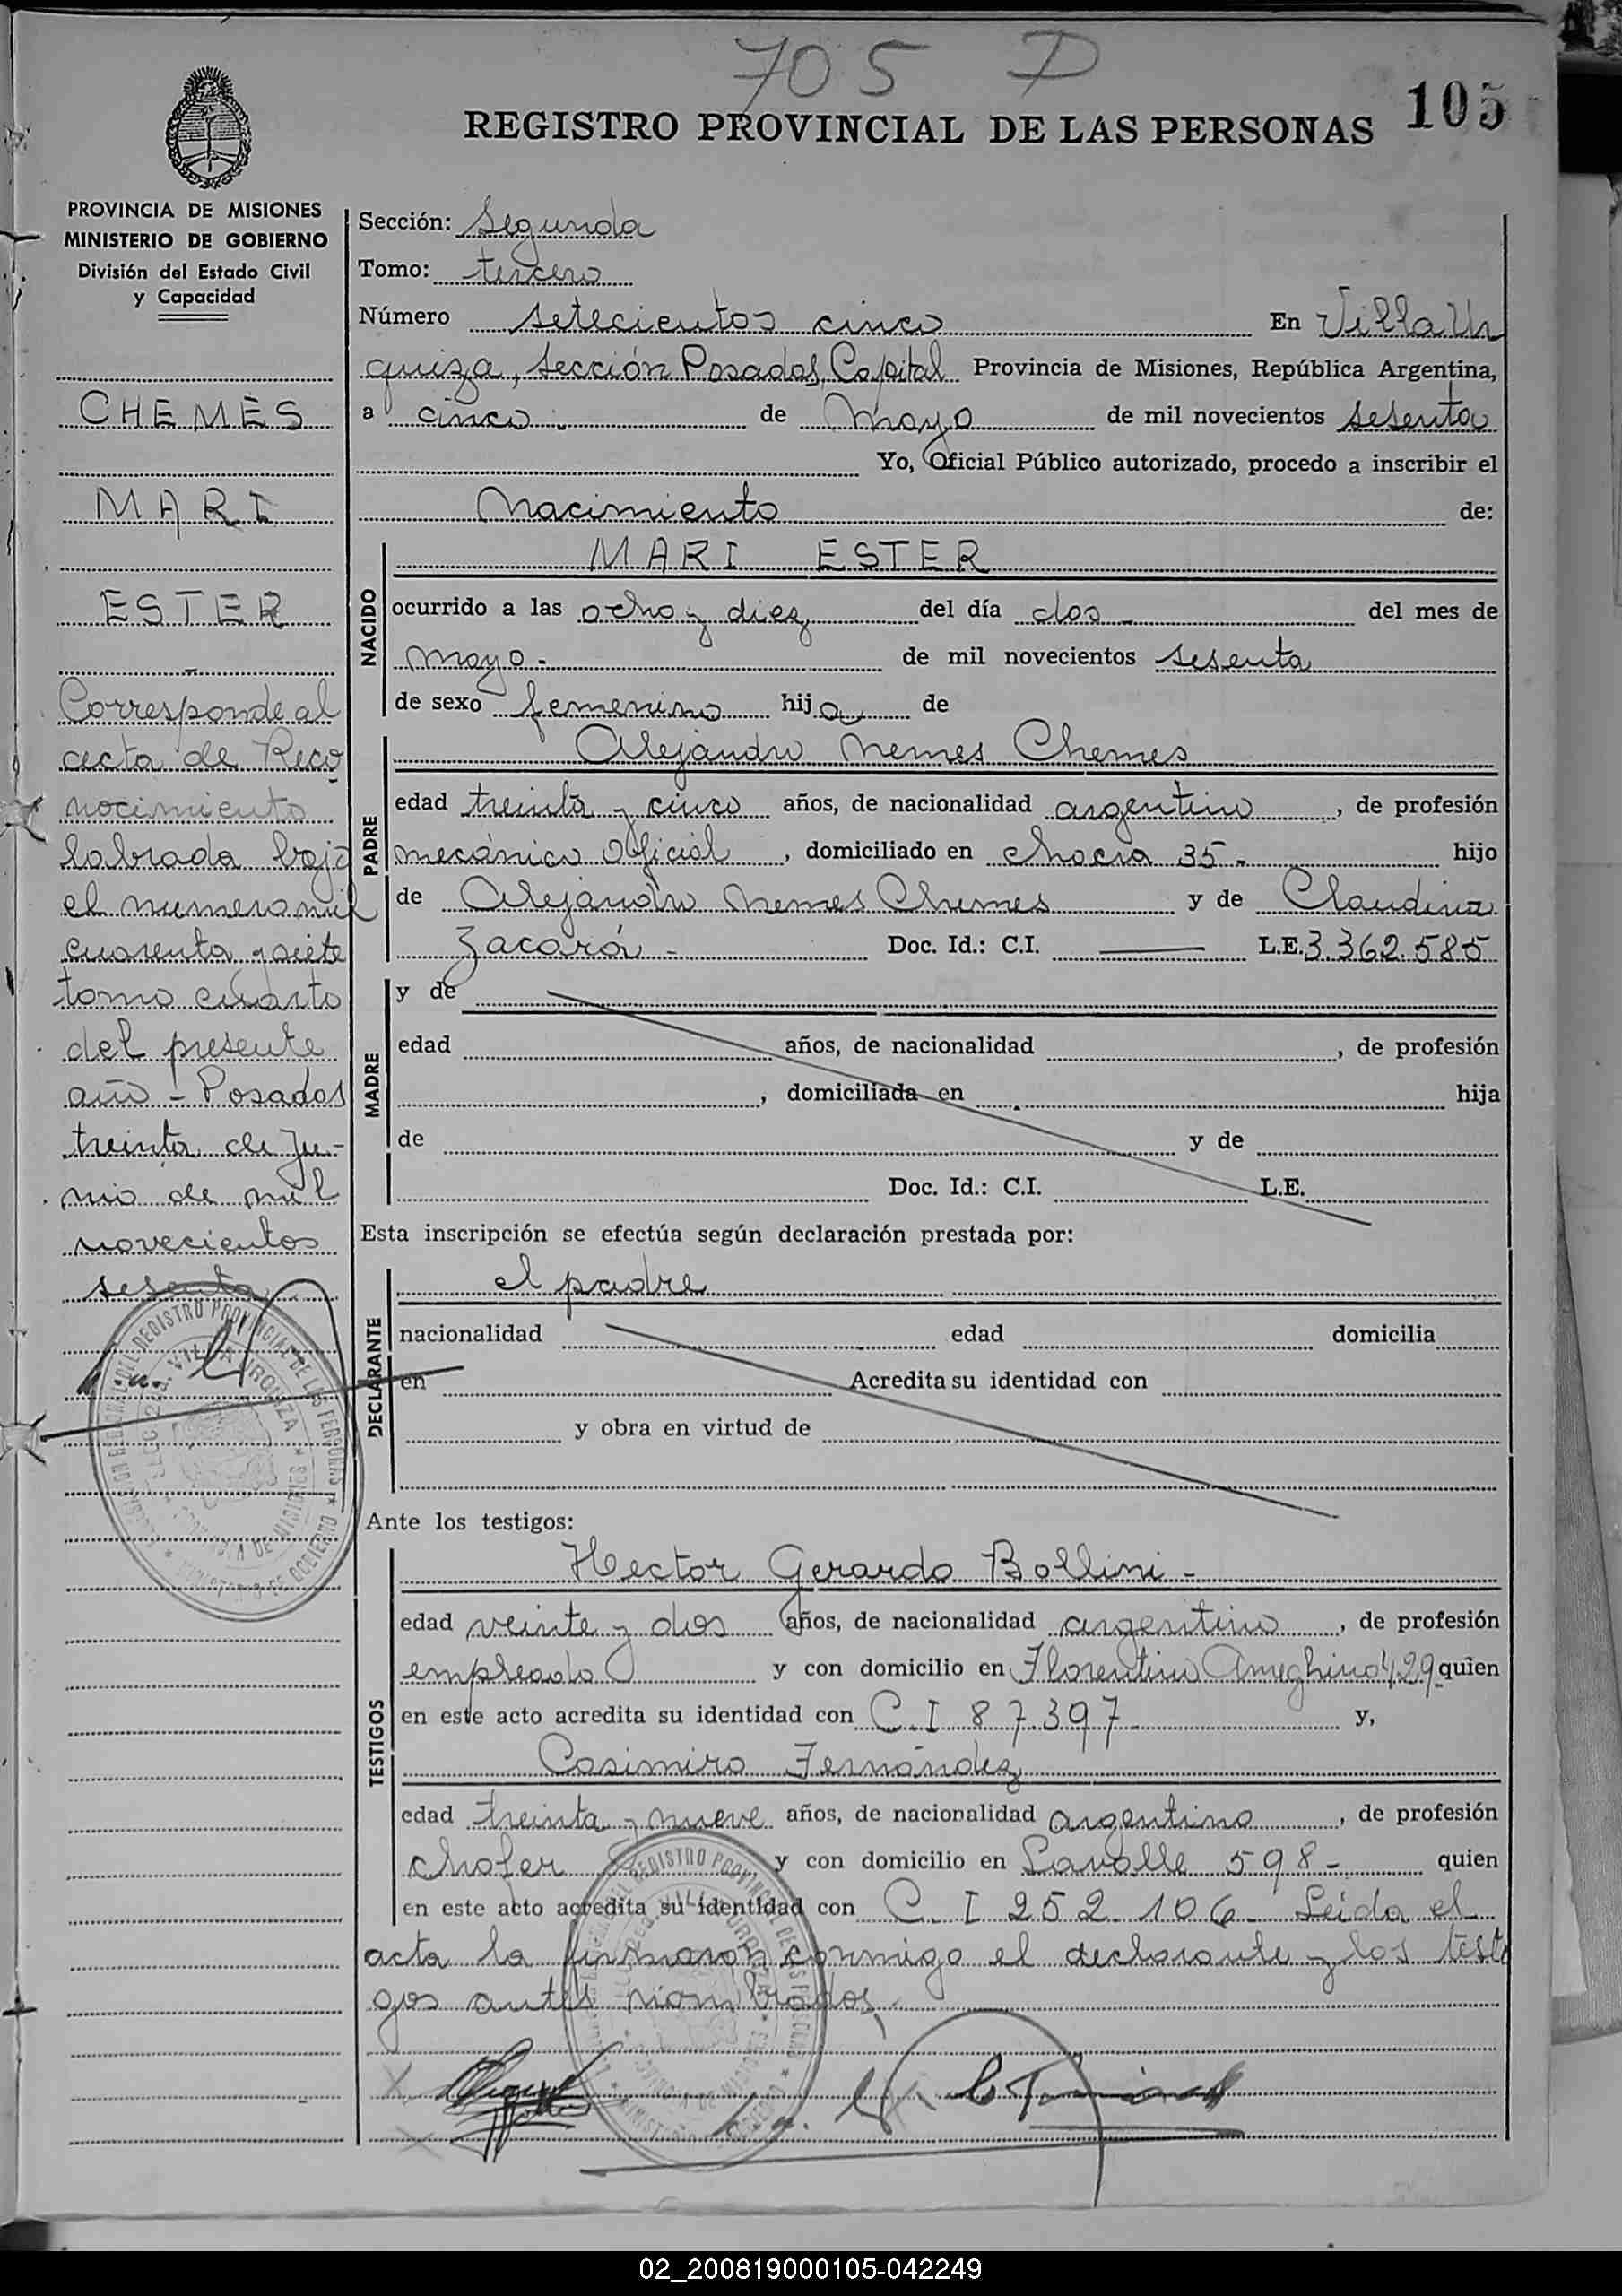 705 D
105
REGISTRO PROVINCIAL DE LAS PERSONAS
PROVINCIA DE MISIONES
MINISTERIO DE GOBIERNO
División del Estado Civil
y Capacidad
CHEMES
MARI
ESTER
Corresponde al
acta de Reco
nocimiento
labrada bajo
el numero mil
cuarenta y siete
tomo cuarto
del presente
año - Posadas
treinta de Ju-
nio de mil
novecientos
sesenta
Sección: Segunda
Tomo: tercero
Número setecientos cinco En Villa Ur
quiza, sección Posadas, Capital Provincia de Misiones, República Argentina,
a cinco de Mayo de mil novecientos sesenta
Yo, Oficial Público autorizado, procedo a inscribir el
Nacimiento de:
NACIDO
MARI ESTER
ocurrido a las ocho y diez del día dos - del mes de
mayo - de mil novecientos sesenta
de sexo femenino hija de
PADRE
Alejandro Nemes Chemes
edad treinta y cinco años, de nacionalidad argentino, de profesión
mecánico Oficial, domiciliado en chacra 35 - hijo
de Alejandro Nemes Chemes y de Claudina
Zacará - Doc. Id.: C.I. — L.E. 3.362.585
MADRE
y de
edad años, de nacionalidad , de profesión
, domiciliada en hija
de y de
Doc. Id.: C.I. L.E.
Esta inscripción se efectúa según declaración prestada por:
DECLARANTE
el padre
nacionalidad edad domicilia
en Acredita su identidad con
y obra en virtud de
Ante los testigos:
TESTIGOS
Hector Gerardo Bollini -
edad veinte y dos años, de nacionalidad argentino, de profesión
empleado y con domicilio en Florentino Ameghino 429 quien
en este acto acredita su identidad con C.I 87.397 - y,
Casimiro Fernández
edad treinta y nueve años, de nacionalidad argentino, de profesión
chofer y con domicilio en Lavalle 598 - quien
en este acto acredita su identidad con C. I 252.106 - Leida el
acta la firmaron conmigo el declarante y los testi
gos antes nombrados,
02_200819000105-042249